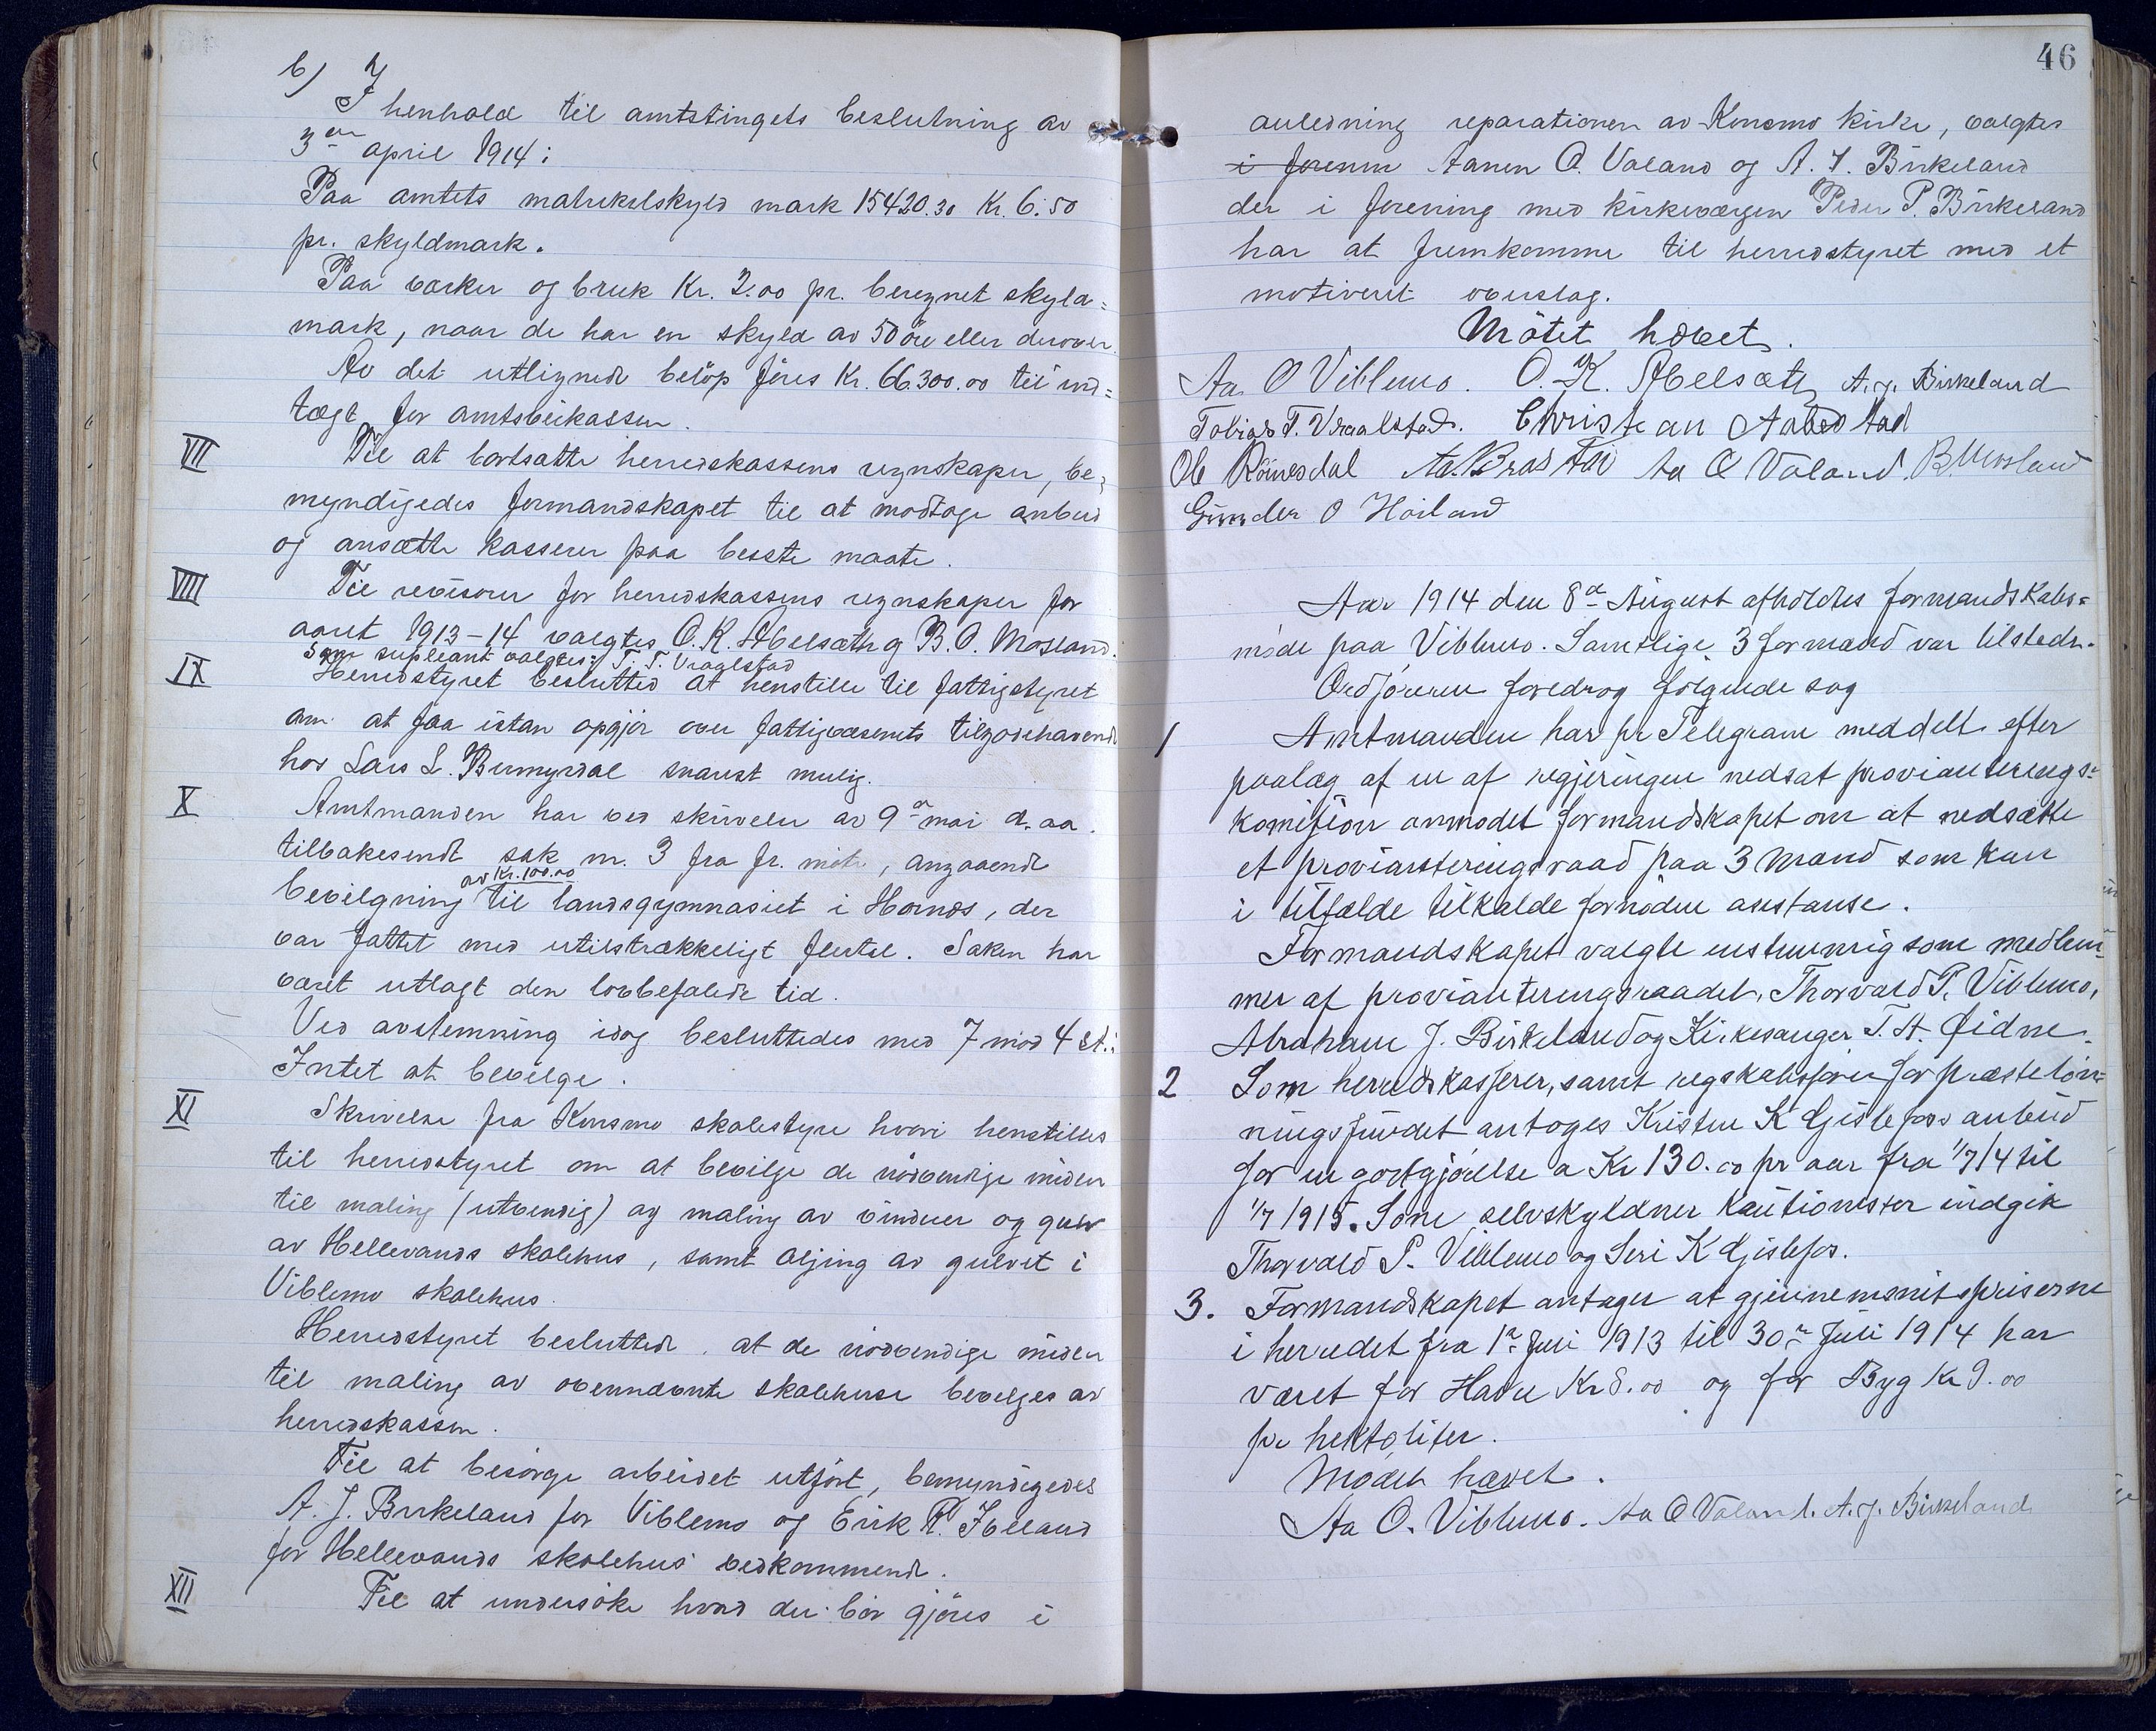 b) I henhold til amtstingets beslutning av
3die april 1914:
Paa amtets matrikelskyld mark 15420.30 Kr. 6.50
pr. skyldmark.
Paa værker og bruk Kr. 2.00 pr. beregnet skyld=
mark, naar de har en skyld av 50 öre eller derover.
Av det utlignede belöp föres Kr. 66.300.00 til ind=
tægt for amtsveikassen.
VII Til at bortsætte herredskassens regnskaper, be=
myndigedes formandskapet til at modtage anbud
og ansætte kasserer paa beste maate.
VIII Til revisorer for herredskassens regnskaper for
aaret 1913-14 valgtes O. K. Abelsæth og B. O. Mosland.
Som supleant valgtes: T. T. Vraalstad
IX Herredstyret beslutted at henstille til fattigstyret
om at faa istan opgjör over fattigvæsenets tilgodehavende
hos Lars L. Brmyrdal snarest mulig.
X Amtmanden har ved skrivelse av 9de mai d. aa.
tilbakesendt sak nr. 3 fra fr. möte, angaaende
bevilgning av Kr. 100.00 til landsgymnasiet i Hornes, der
var fattet med utilstrækkeligt flertal. Saken har
været utlagt den lovbefalede tid.
Ved avstemning idag besluttedes med 7 mod 4 st.:
Intet at bevilge.
XI Skrivelse fra Konsmo skolestyre hvori henstilles
til herredstyret om at bevilge de nödvendige midler
til maling (utvendig) og maling av vinduer og gulv
av Hellevands skolehus, samt oljing av gulvet i
Viblemo skolehus.
Herredstyret besluttede at de nödvendige midler
til maling av ovennævnte skolehuse bevilges av
herredskassen.
Til at besörge arbeidet utfört, bemyndigedes
A. J. Birkeland for Viblemo og Erik R. Ibeland
for Hellevands skolehus vedkommende.
XII Til at undersöke hvad der bör gjöres i
46
anledning reparationen av Konsmo kirke, valgtes
i forenin Aanen O. Valand og A. J. Birkeland
der i forening med kirkevergen Peder P. Birkeland
har at fremkomme til herredstyret med et
motivert overslag.
Mötet hævet.
Aa. O Viblemo. O. K. Abelsæth A. J. Birkeland
Tobias T. Vraalstad. Christian Aabestad
Ole Röinesdal Aa. Bradtad Aa O Valand. B. Mosland
Gunder O Hoiland
Aar 1914 den 8de August afholdtes formandskabs=
möde paa Viblemo. Samtlige 3 formænd var tilstede.
Ordföreren foredrog fölgende sag
1 Amtmanden har pr Telegram meddelt efter
paalæg af en af regjeringen nedsat provianterings=
komisjion anmodet formandskapet om at nedsætte
et provianteringsraad paa 3 mand som kan
i tilfælde tilkalde fornöden asistanse.
Formandskapet valgte enstemmig som medlem=
mer af provianteringsraadet, Thorvald P. Viblemo,
Abraham J. Birkeland og Kirkesanger T. A. Øidne.
2 Som herredskasserer, samt regskabsförer for præstelön=
ningsfondet antoges Kristen K Gislefos anbud
for en godtgjörelse a Kr 130.00 pr aar fra 1/7 14 til
1/7 1915. Som selvskyldner kautionister indgik
Thorvald P. Viblemo og Seri K Gislefos.
3. Formandskapet antager at gjennemsnitspriserne
i herredet fra 1de Juli 1913 til 30de Juli 1914 har
været for Havre Kr 8.00 og for Byg Kr 9.00
pr hektoliter.
Mödet hævet.
Aa O. Viblemo. Aa O Valand. A. J. Birkeland